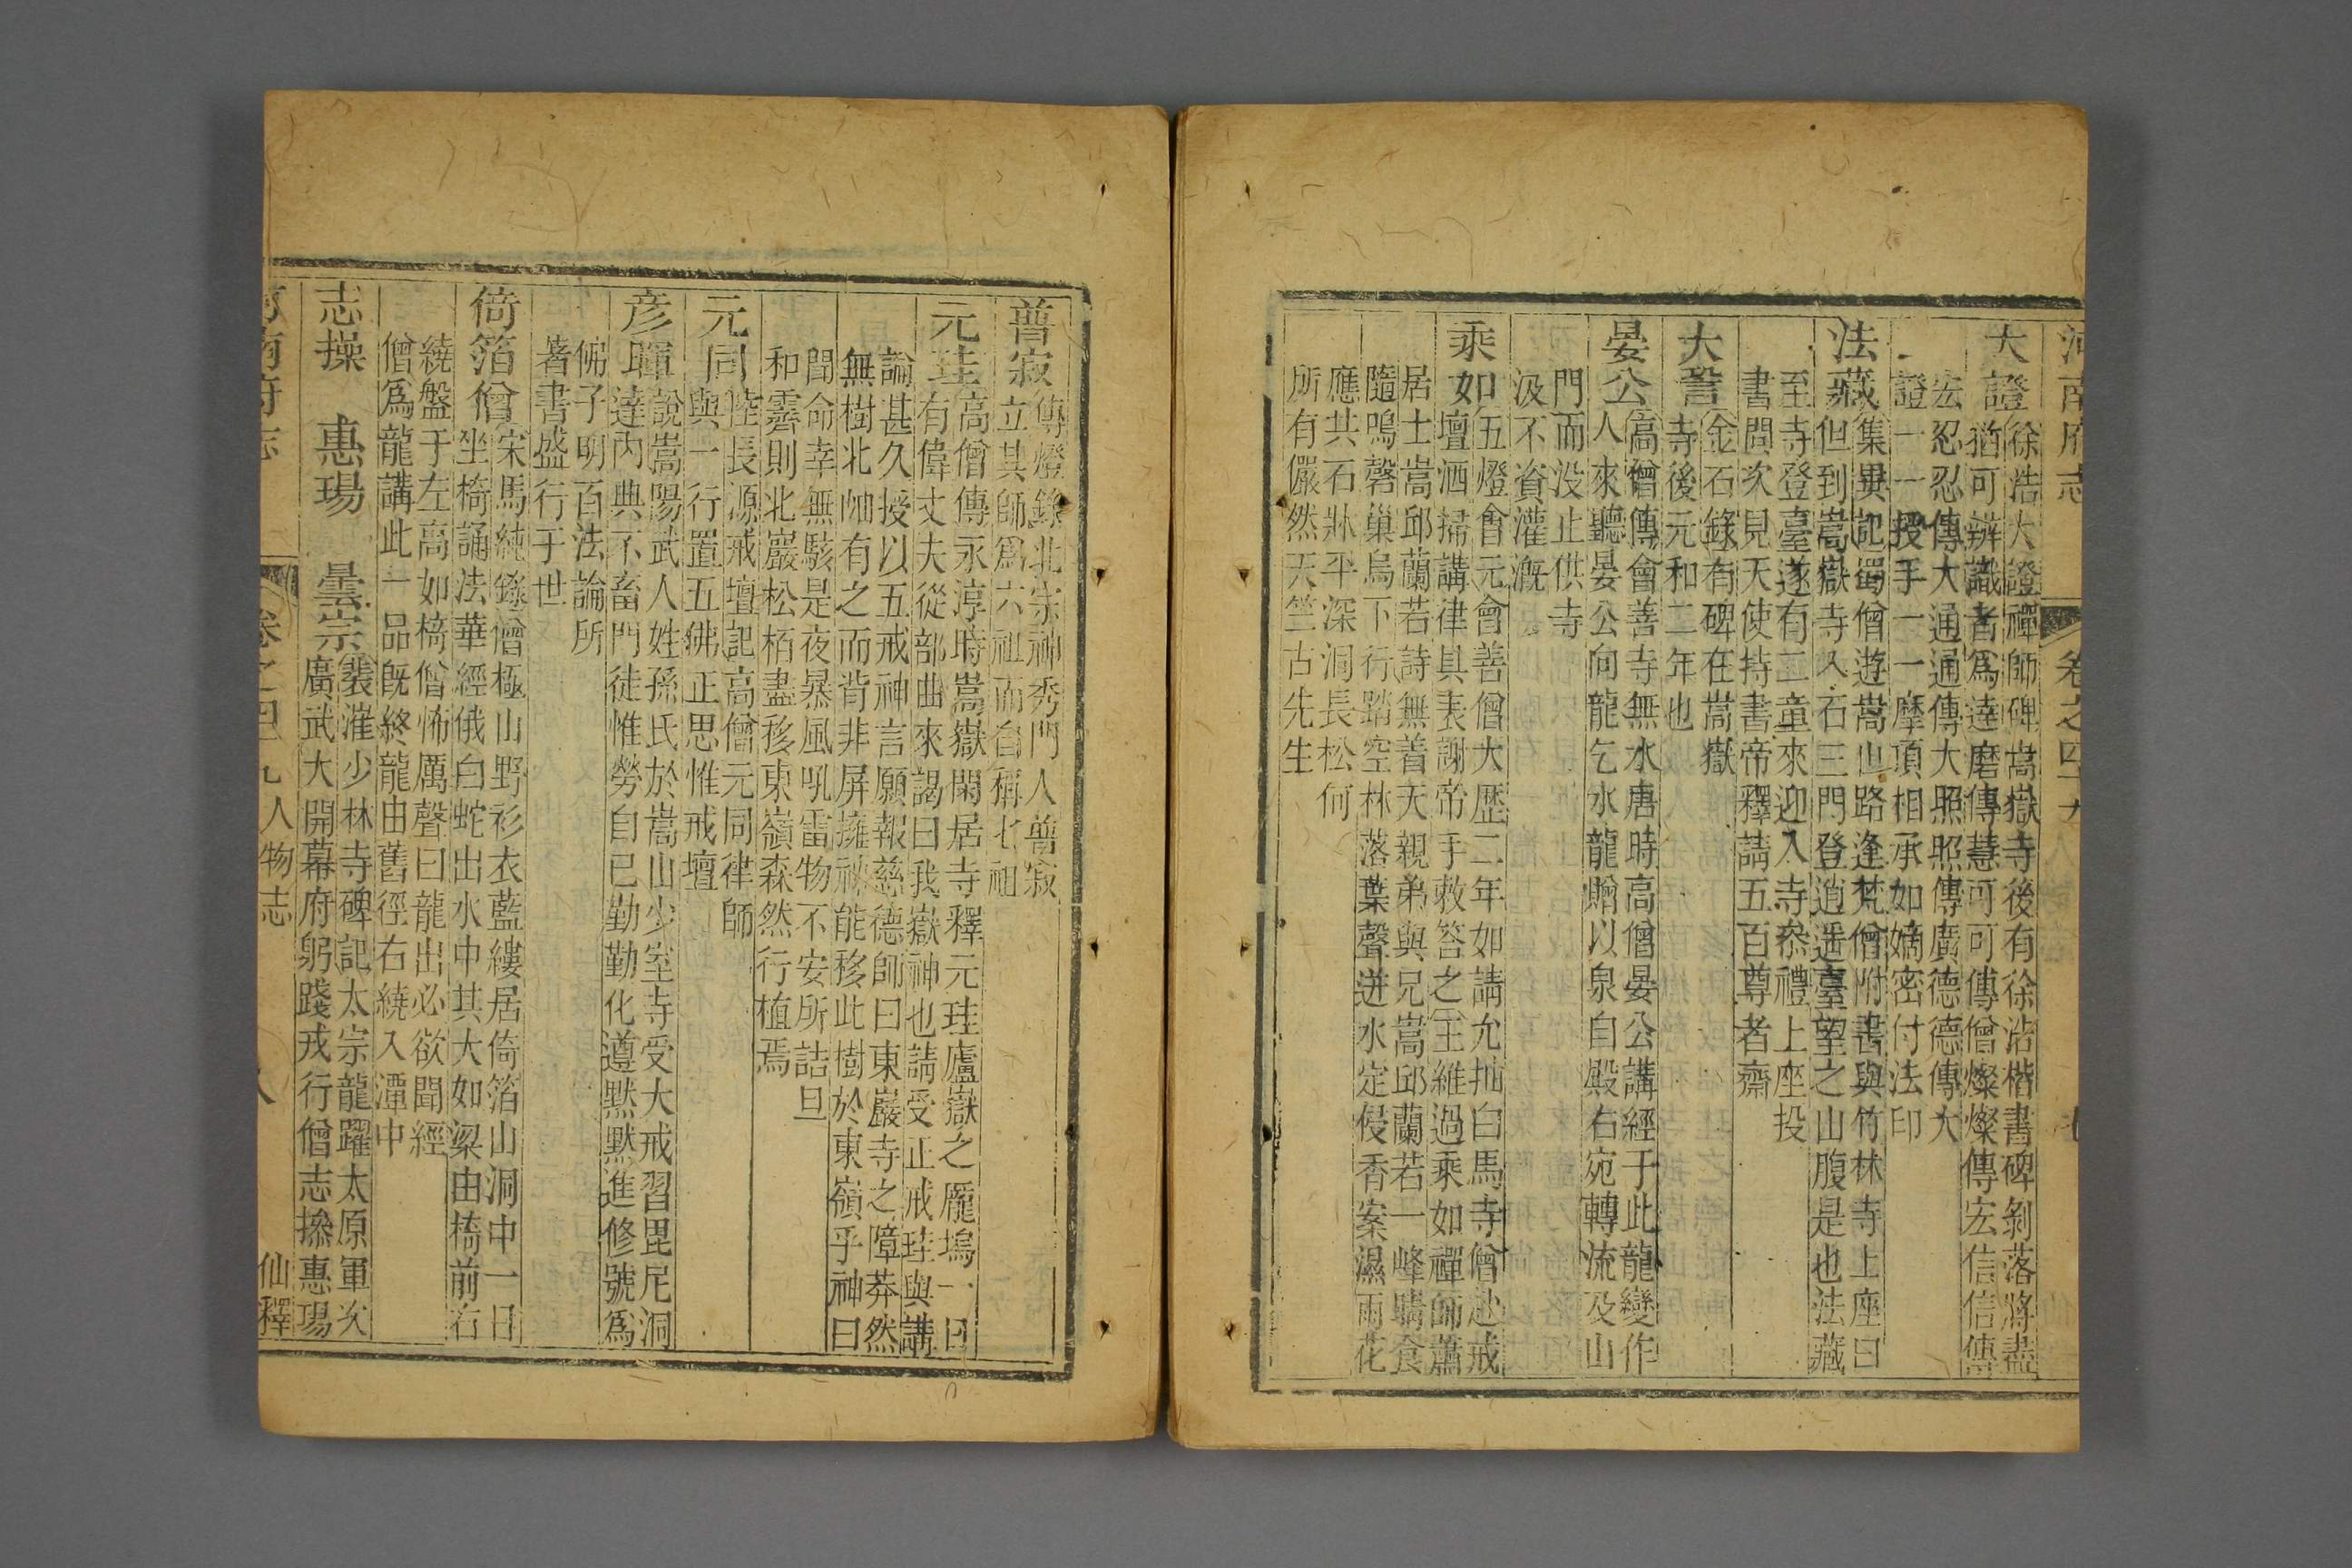 河南府志 卷之四十九
大證徐浩大證禪師碑嵩嶽寺後有徐浩楷書碑剝落將盡
猶可辨識者爲達磨傳慧可可傳僧燦燦傳宏信信傳
宏忍忍傳大通通傳大照照傳廣德德傳大
證一一授手一一摩頂相承如嫡密付法印
法藏集異記蜀僧遊嵩山路逢梵僧附書與竹林寺上座曰
但到嵩嶽寺入石三門登逍遥臺望之山腹是也法藏
至寺登臺遂有二童來迎入寺叅禮上座投
書問次見天使持書帝釋請五百尊者齋
大訔金石錄有碑在嵩嶽
寺後元和二年也
晏公高僧傳會善寺無水唐時高僧晏公講經于此龍變作
人來聽晏公向龍乞水龍贈以泉自殿右宛轉流及山
門而没止供寺
汲不資灌漑
乘如五燈會元會善僧大歷二年如請允抽白馬寺僧赴戒
壇洒掃講律具表謝帝手敕答之王維過乘如禪師蕭
居士嵩邱蘭若詩無著天親弟與兄嵩邱蘭若一峰晴食
隨鳴磬巢烏下行踏空林落葉聲迸水定侵香案濕雨花
應共石牀平深洞長松何
所有儼然天竺古先生
普寂傳燈錄北宗神秀門人普寂
立其師爲六祖而自稱七祖
元珪高僧傳永淳時嵩嶽閑居寺釋元珪廬嶽之龎塢一日
有偉丈夫從部曲來謁曰我嶽神也請受正戒珪與講
論甚久授以五戒神言願報慈德師曰東巖寺之障莽然
無樹北岫有之而背非屏擁神能移此樹於東嶺乎神曰
聞命幸無駭是夜暴風吼雷物不安所詰旦
和霽則北巖松栢盡移東嶺森然行植焉
元同陸長源戒壇記高僧元同律師
與一行置五佛正思惟戒壇
彦暉說嵩陽武人姓孫氏於嵩山少室寺受大戒習毘尼洞
達內典不畜門徒惟勞自己勤勤化遵默默進修號爲
俯子明百法論所
著書盛行于世
倚箔僧宋馬純錄僧極山野衫衣藍縷居倚箔山洞中一日
坐椅誦法華經俄白蛇出水中其大如梁由椅前右
繞盤于左高如椅僧怖厲聲曰龍出必欲聞經
僧爲龍講此一品旣終龍由舊徑右繞入潭中
志操 惠瑒 曇宗裴漼少林寺碑記太宗龍躍太原軍次
廣武大開幕府躬踐戎行僧志操惠瑒
河南府志 卷之四十九人物志 八 仙釋